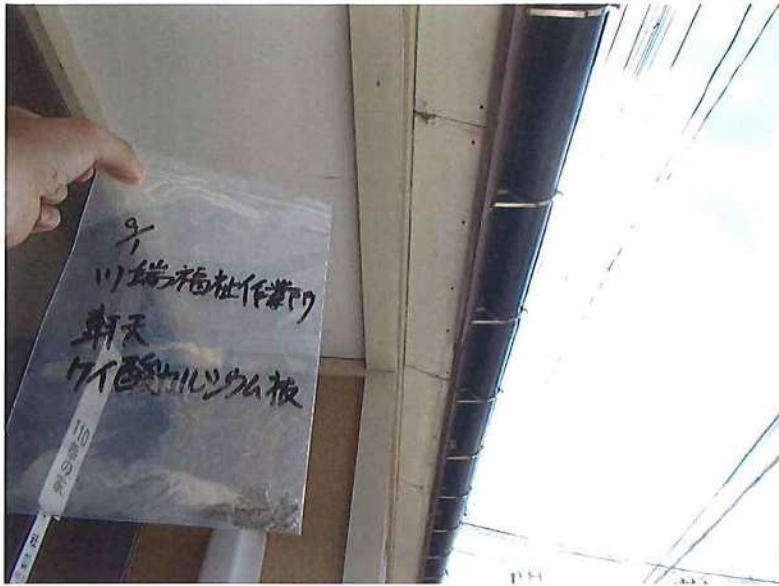 9/1
川端福祉作業所
軒天
ケイ酸カルシウム板
110番の家